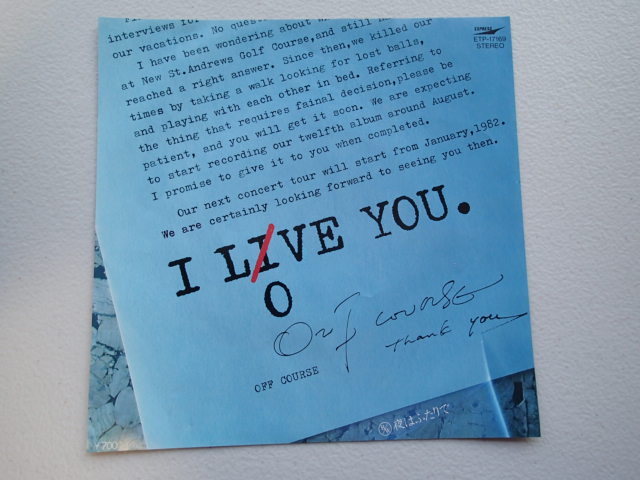 interviews for
our vacations. No quest
I have been wondering about
at New St.Andrews Golf Course,and still
reached a right answer. Since then,we killed our
times by taking a walk looking for lost balls,
and playing with each other in bed. Referring to
the thing that requires fainal decision,please be
patient, and you will get it soon. We are expecting
to start recording our twelfth album around August.
I promise to give it to you when completed.
Our next concert tour will start from January,1982.
We are certainly looking forward to seeing you then.
I LIVE YOU.
O
OFF COURSE
Thank you
OFF COURSE
夜はふたりで
¥700
EXPRESS
ETP-17169
STEREO